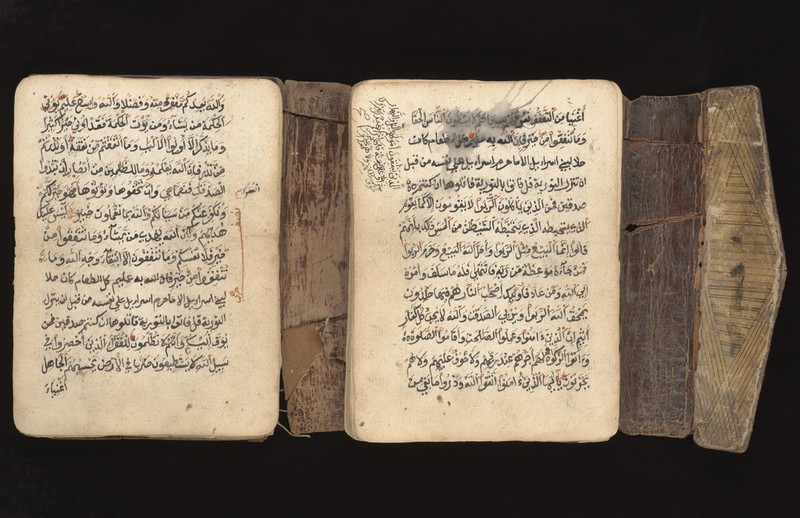 والله يعدكم مغفرة منه وفضلا والله واسع عليم يؤتي
الحكمة من يشاء ومن يؤت الحكمة فقد أوتي خيرا كثيرا
وما يذكر إلا أولوا الألبب وما أنفقتم من نفقة أو نذرتم
من نذر فإن الله يعلمه وما للظلمين من أنصار إن تبدوا
الصدقت فنعما هي وإن تخفوها وتؤتوها فهو خير لكم
الفقراء
ونكفر عنكم من سيئاتكم والله بما تعملون خبير ليس عليك
هداهم ولكن الله يهدي من يشاء وما تنفقوا من
خير فلأنفسكم وما تنفقون إلا ابتغاء وجه الله وما
تنفقوا من خير فإن الله به عليم كل الطعام كان حلا
لبني اسرايل الا ما حرم اسرايل على نفسه من قبل ان تنزل
التورية قل فاتوا بالتورية فاتلوها ان كنتم صدقين فمن
يوف اليكم وانتم لا تظلمون للفقراء الذين احصروا في
سبيل الله لا يستطيعون ضربا في الارض يحسبهم الجاهل
أغنياء
أغنيا من التعفف الناس الحافا
وما تنفقوا من خير فإن الله به عليم كل الطعام كان
حلا لبني اسرايل الا ما حرم اسرايل على نفسه من قبل
ان تنزل التورية قل فاتوا بالتورية فاتلوها ان كنتم
صدقين فمن الذين ياكلون الربوا لا يقومون الا كما يقوم
الذي يتخبطه الذي يتخبطه الشيطن من المس ذلك بانهم
قالوا انما البيع مثل الربوا واحل الله البيع وحرم الربوا
فمن جاءه موعظة من ربه فانتهى فله ما سلف وامره
الى الله ومن عاد فاوليك اصحب النار هم فيها خلدون
يمحق الله الربوا ويربي الصدقت والله لا يحب كل كفار
أثيم ان الذين ءامنوا وعملوا الصلحت واقاموا الصلوة
وءاتوا الزكوة لهم اجرهم عند ربهم ولا خوف عليهم ولا هم
يحزنون يأيها الذين ءامنوا اتقوا الله وذروا ما بقي من